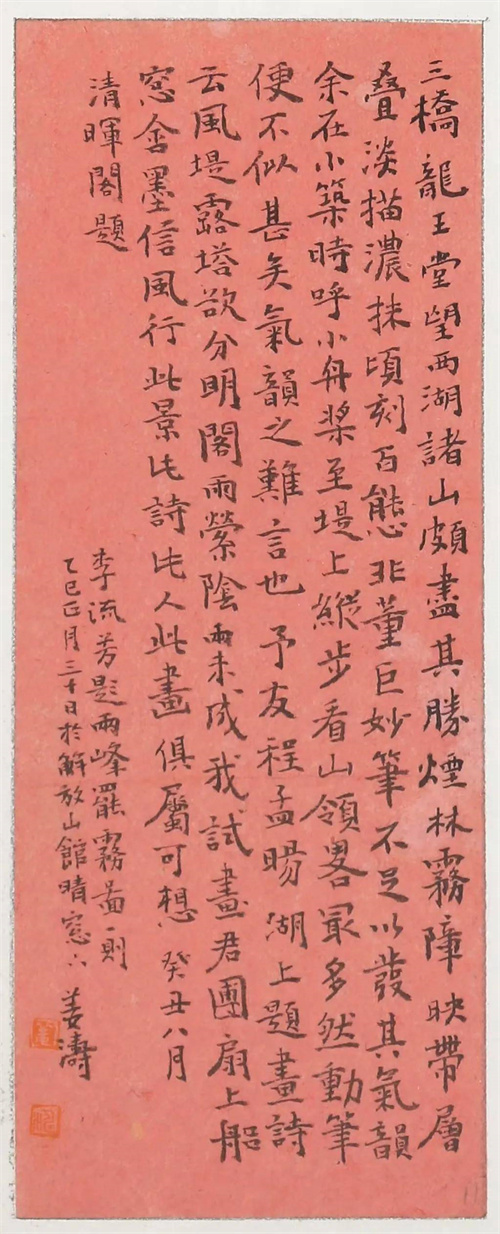 三橋龍王堂望西湖諸山頗盡其勝煙林霧障映帶層
疊淡描濃抹頃刻百態非董巨妙筆不足以發其氣韻
余在小築時呼小舟槳至堤上縱步看山領畧最多然動筆
便不似甚矣氣韻之難言也予友程孟暘湖上題畫詩
云風堤露塔欲分明閣雨縈陰雨未成我試畫君團扇上船
窓含墨信風行此景此詩此人此畫俱屬可想癸丑八月
清暉閣題
李流芳題兩峰罷霧圖一則
乙巳正月三十日於解放山館晴窓下
姜濤